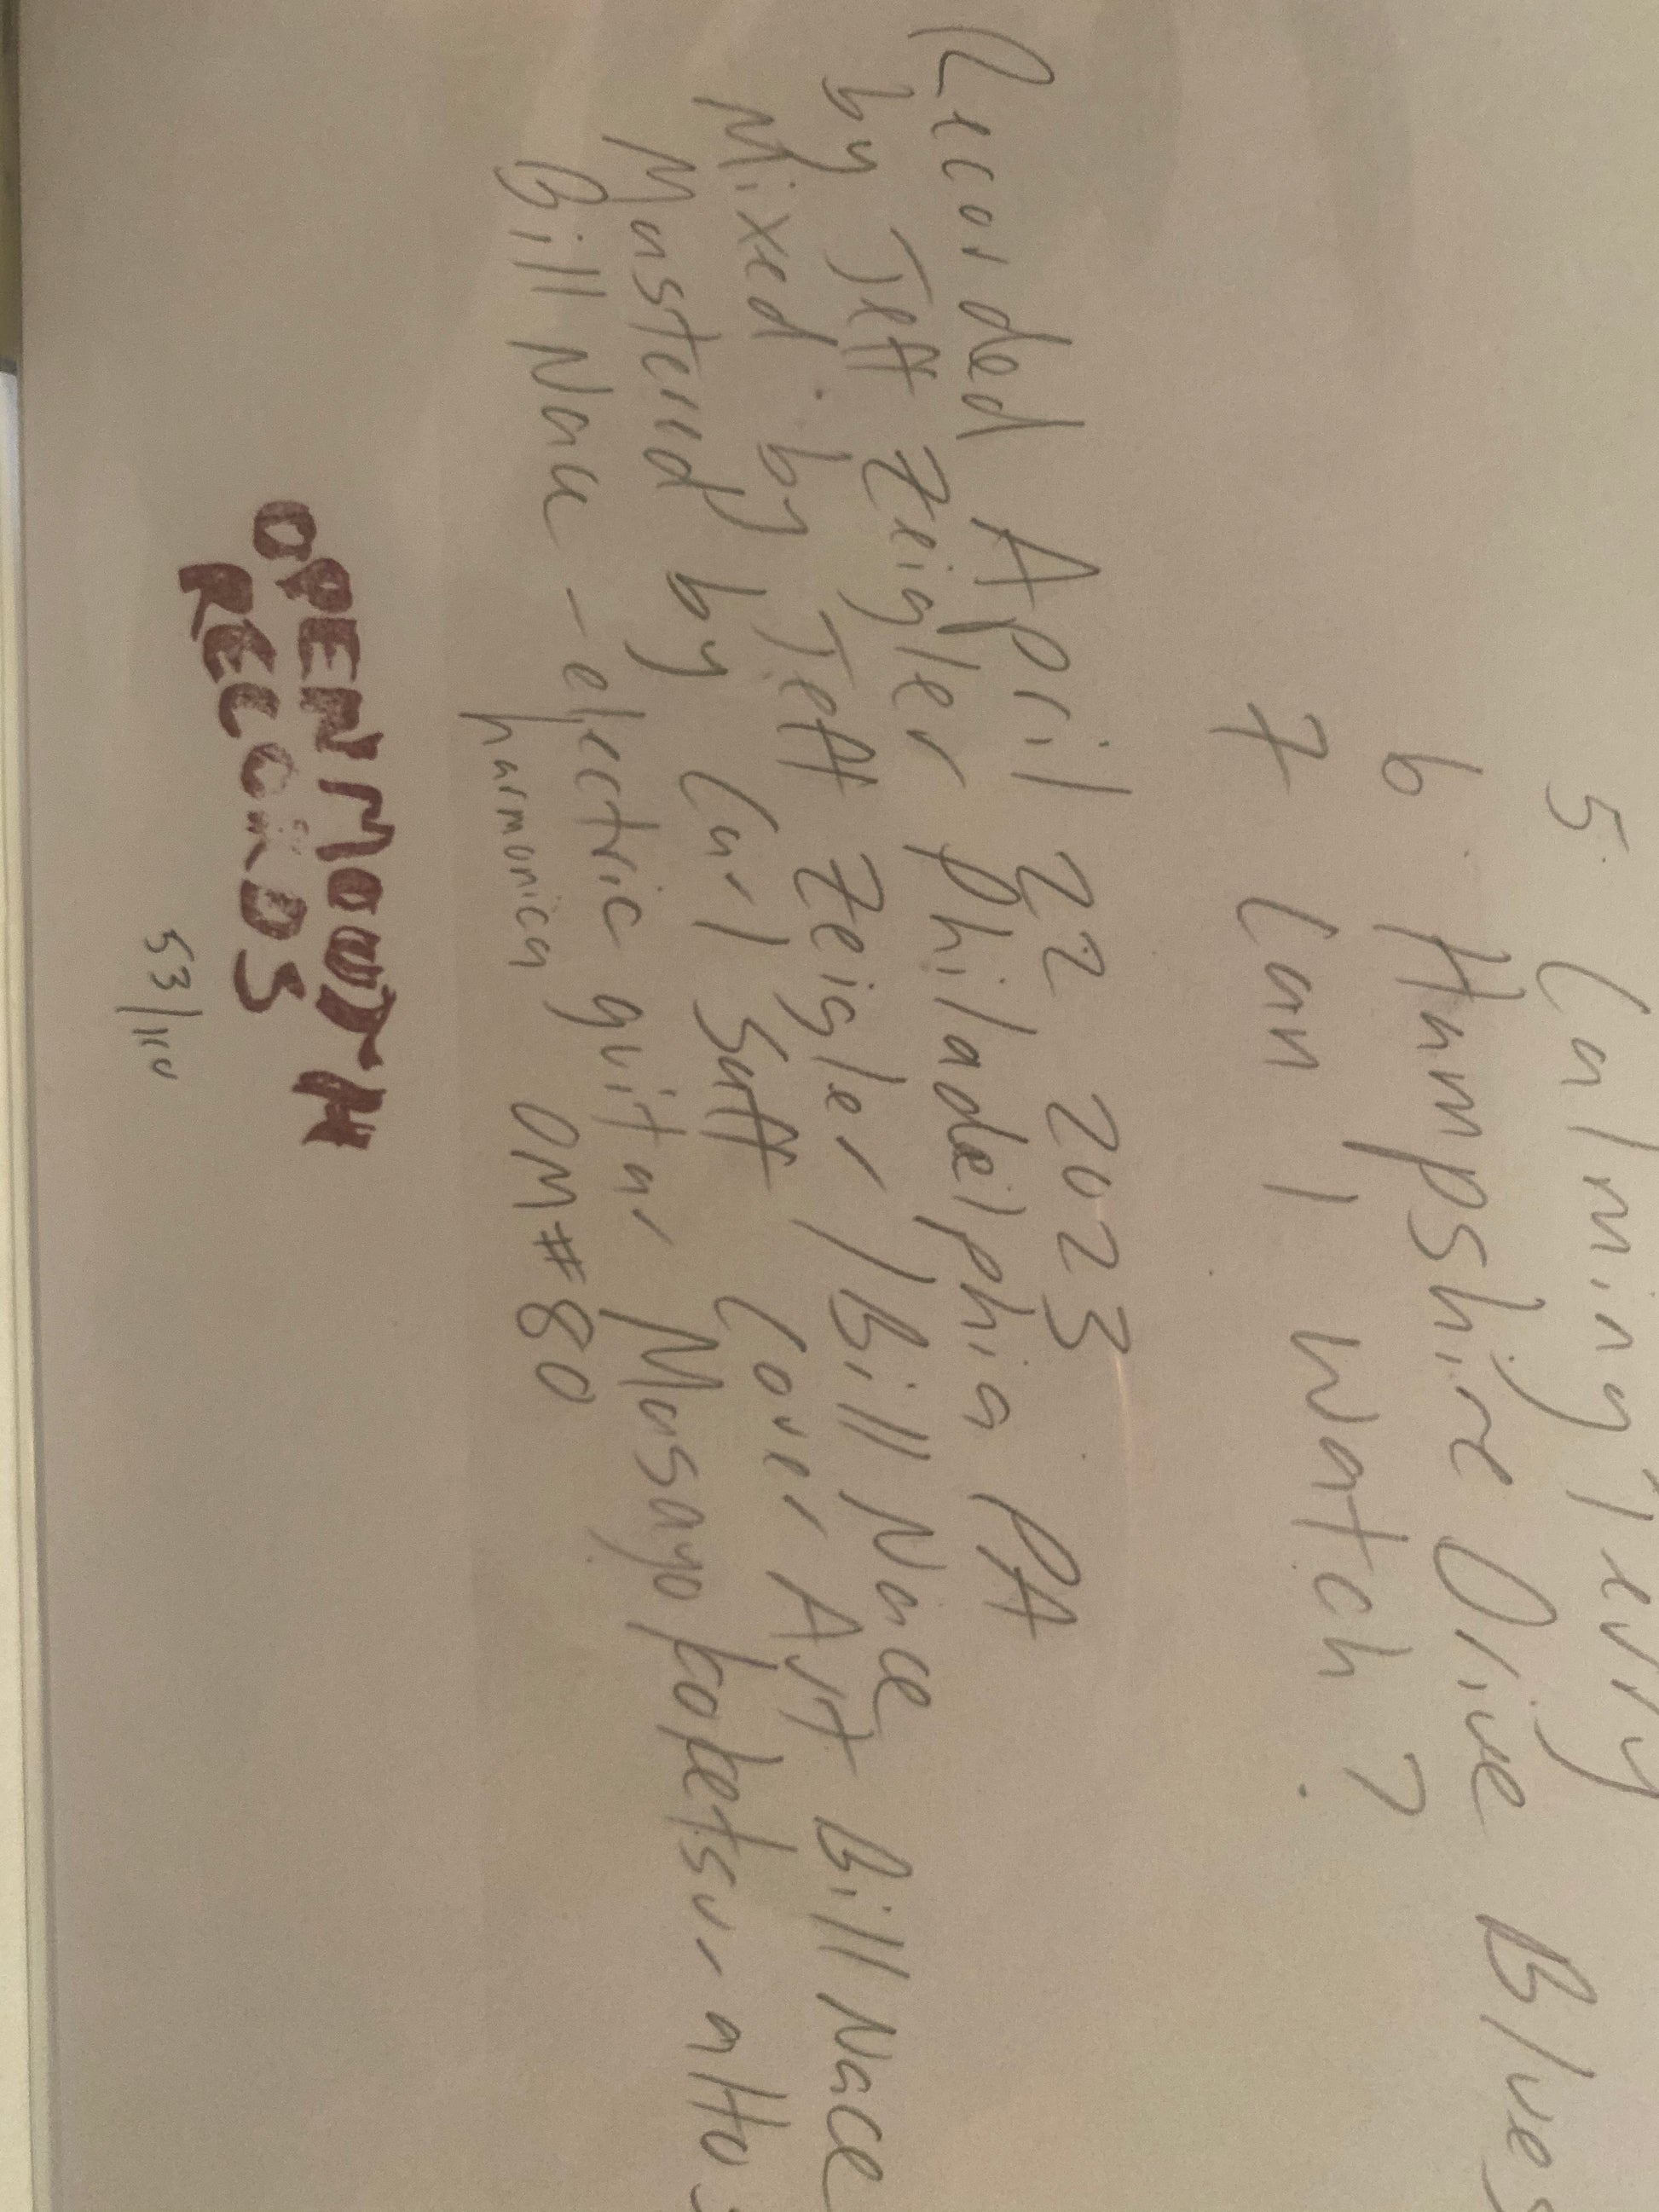 5. Calming Jerry
6 Hampshire Olive Blues
7 Can I Watch?
Recorded April 22 2023
by Jeff Zeigler Philadelphia PA
Mixed by Jeff Zeigler / Bill Nace
Mastered by Carl Saff Cover Art Bill Nace
Bill Nace - electric guitar Masayo Koketsu - alto
harmonica OM#80
OPEN MOUTH
RECORDS
53/110